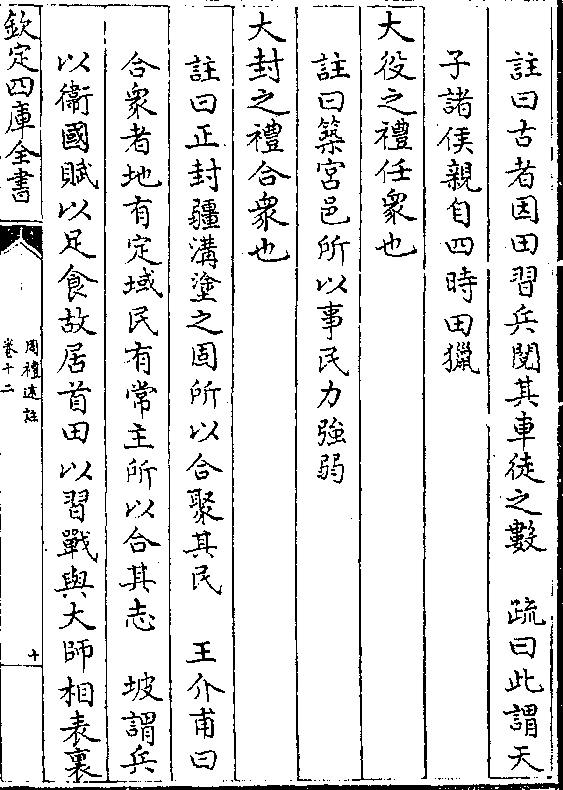 註曰古者因田習兵閱其車徒之數　疏曰此謂天
子諸侯親自四時田獵
大役之禮任衆也
註曰築宮邑所以事民力強弱
大封之禮合衆也
註曰正封疆溝塗之固所以合聚其民　王介甫曰
合衆者地有定域民有常主所以合其志　坡謂兵
以衛國賦以足食故居首田以習戰與大師相表裏
欽定四庫全書
周禮述註
卷十二
十